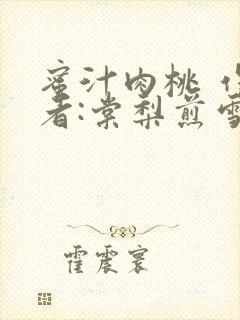 蜜汁肉桃 作
者:棠梨煎雪
霍震寰